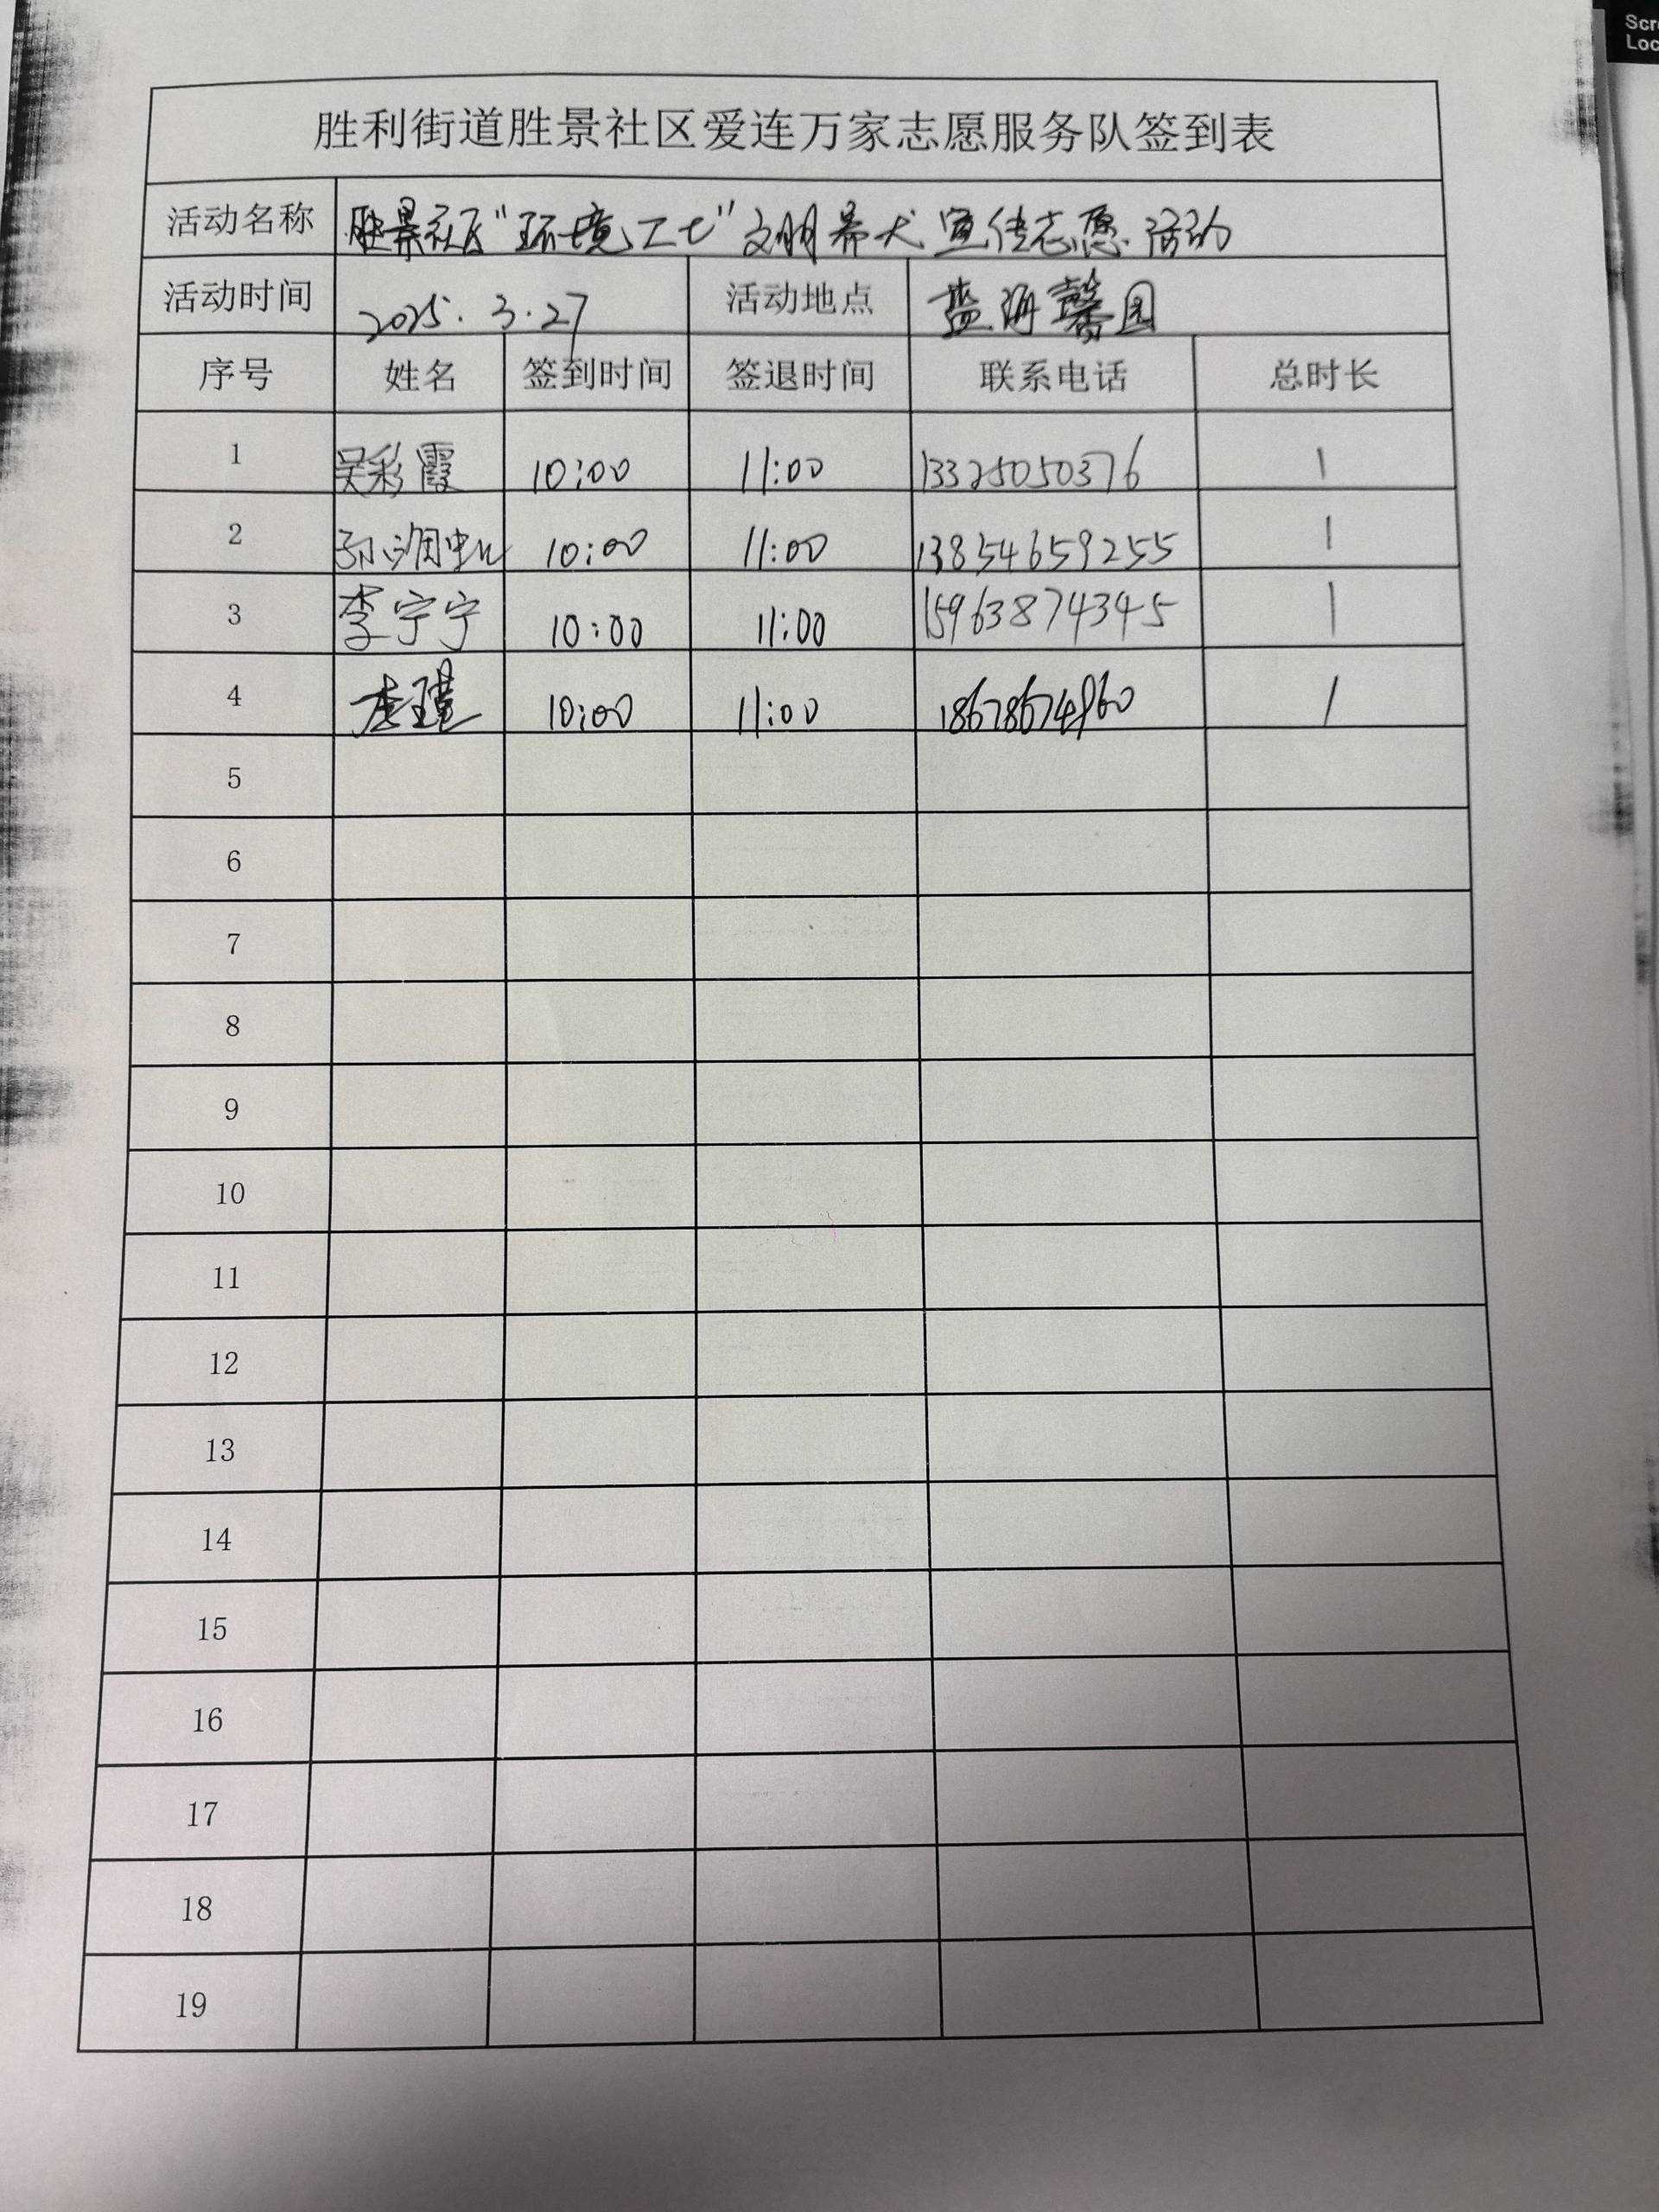 Scr
Loc
胜利街道胜景社区爱连万家志愿服务队签到表
活动名称 胜景社区“环境卫士”文明养犬宣传志愿活动
活动时间 2025.3.27 活动地点 蓝海馨园
序号 姓名 签到时间 签退时间 联系电话 总时长
1 吴彩霞 10:00 11:00 13325050376 1
2 10:00 11:00 13854659255 1
3 李宁宁 10:00 11:00 15963874345 1
4 10:00 11:00 1
5
6
7
8
9
10
11
12
13
14
15
16
17
18
19